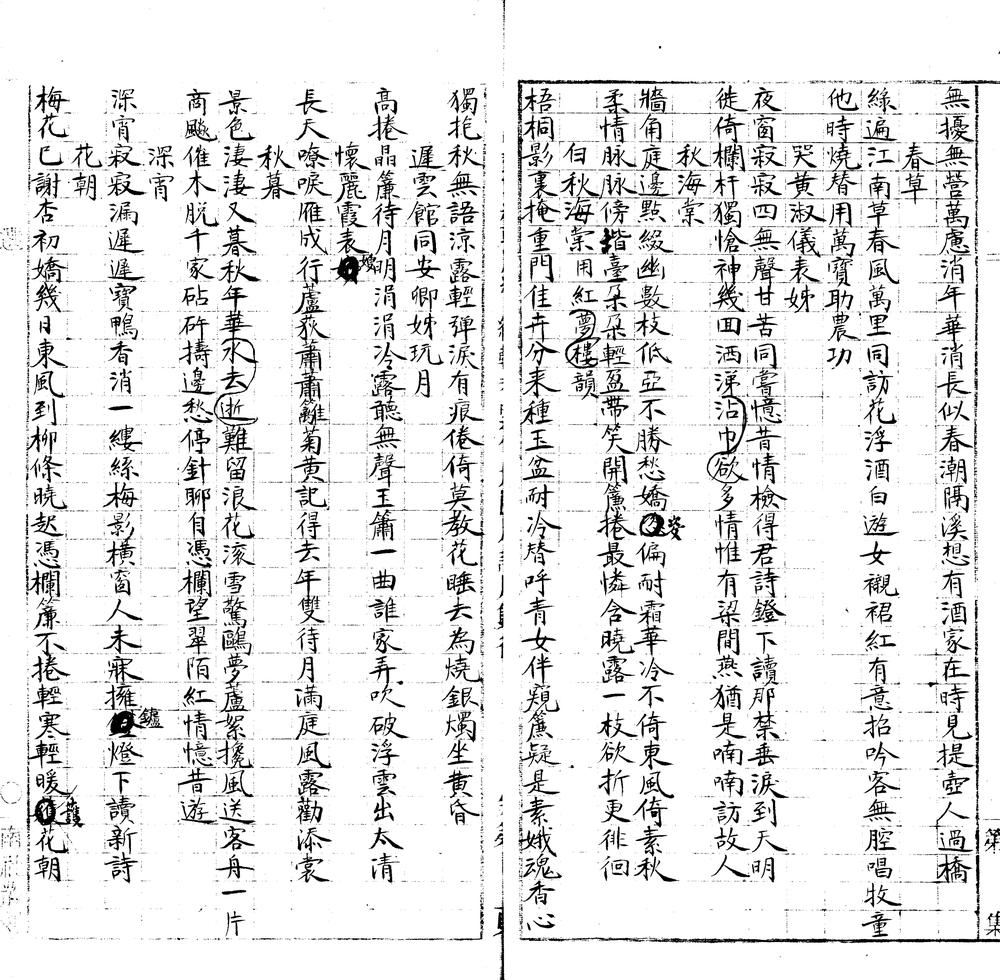 無擾無營萬慮消年華消長似春潮隔溪想有酒家在時見提壺人過橋
春草
綠遍江南草春風萬里同訪花浮酒白遊女襯裙紅有意招吟客無腔唱牧童
他時燒替用萬寶助農功
哭黃淑儀表姊
夜窗寂寂四無聲甘苦同嘗憶昔情檢得君詩鐙下讀那禁垂淚到天明
徙倚欄杆獨愴神幾回洒涕沾巾欲多情惟有梁間燕猶是喃喃訪故人
秋海棠
牆角庭邊點綴幽數枝低亞不勝愁嬌姿偏耐霜華冷不倚東風倚素秋
柔情脉脉傍堦臺朵朵輕盈帶笑開簾捲最憐含曉露一枝欲折更徘徊
白秋海棠用紅夢樓韻
梧桐影裏掩重門佳卉分來種玉盆耐冷替呼青女伴窺簾疑是素娥魂香心
獨抱秋無語涼露輕彈淚有痕倦倚莫教花睡去為燒銀燭坐黃昏
遲雲館同安卿姊玩月
高捲晶簾待月明涓涓冷露聽無聲玉簫一曲誰家弄吹破浮雲出太清
懷麗霞表
長天嘹唳雁成行蘆荻蕭蕭籬菊黃記得去年雙待月滿庭風露勸添裳
秋暮
景色淒淒又暮秋年華水去逝難留浪花滾雪驚鷗夢蘆絮攙風送客舟一片
商颷催木脱千家砧杵擣邊愁停針聊自憑欄望翠陌紅情憶昔遊
深宵
深宵寂寂漏遲遲寶鴨香消一縷絲梅影橫窗人未寐擁鑪燈下讀新詩
花朝
梅花已謝杏初嬌幾日東風到柳條曉起憑欄簾不捲輕寒輕暖護花朝
第
集